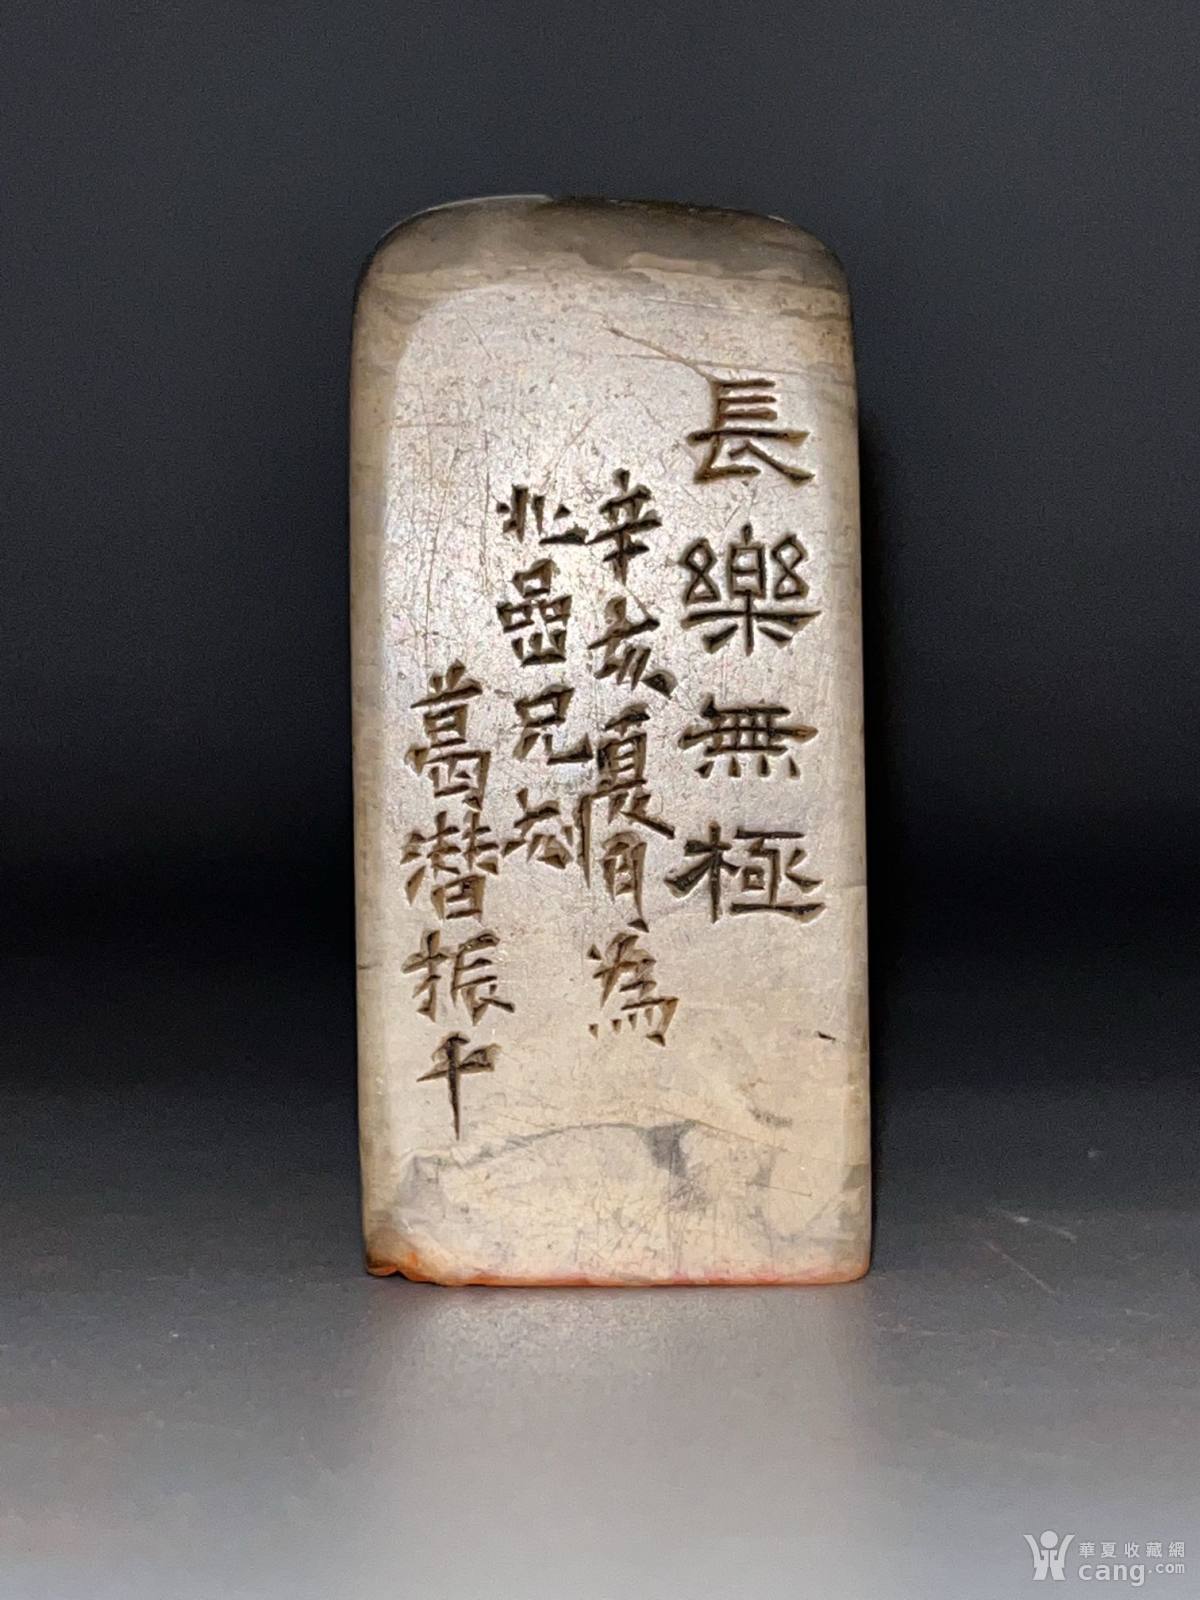 長樂無極
辛亥夏月為
北嵒兄刻
葛潛振千
華夏收藏網
cang.com